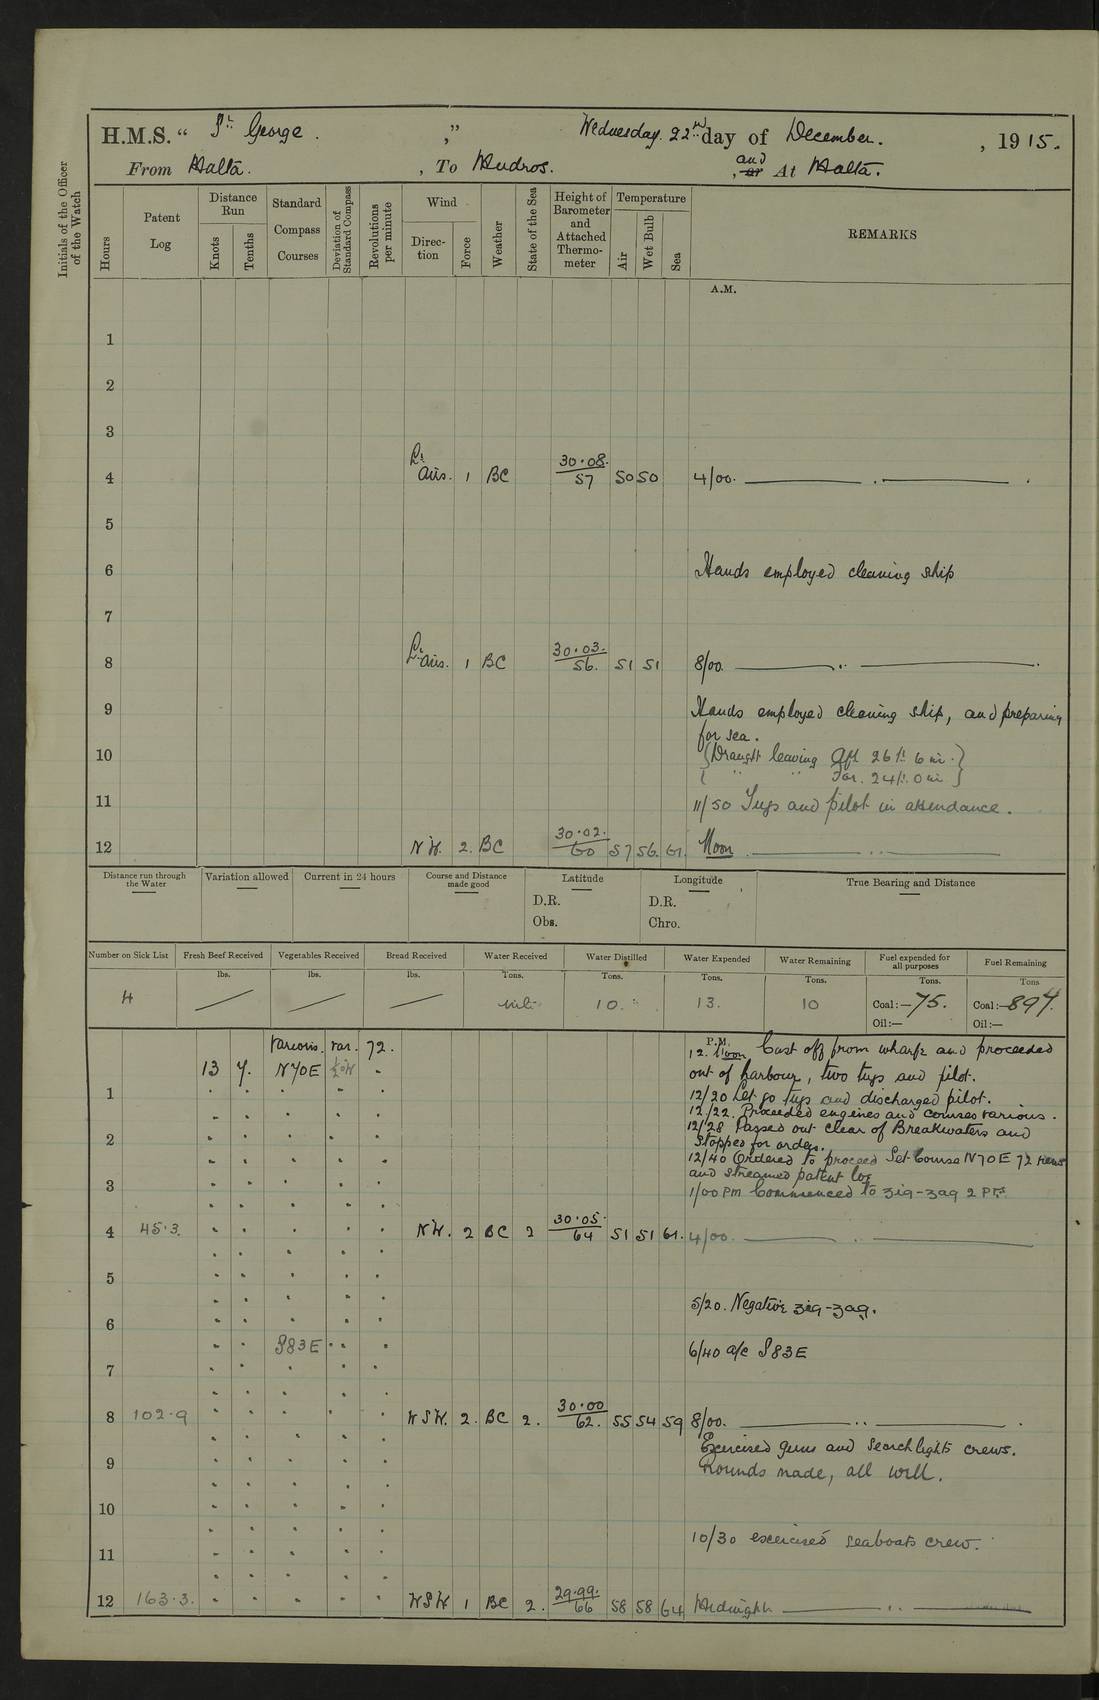 H.M.S. “ St. George. ,” Wednesday. 22nd day of December. , 1915.
From Malta. , To Mudros. , and or At Malta.
Initials of the Officer of the Watch
Hours
Patent Log
Distance Run
Knots
Tenths
Standard Compass Courses
Deviation of Standard Compass
Revolutions per minute
Wind
Direction
Force
Weather
State of the Sea
Height of Barometer and Attached Thermometer
Temperature
Air
Wet Bulb
Sea
REMARKS
A.M.
1
2
3
4 Lt. Airs. 1 BC 30.08. 57 50 50 4/00.
5
6 Hands employed cleaning ship
7
8 Lt. Airs. 1 BC 30.03. 56. 51 51 8/00.
9 Hands employed cleaning ship, and preparing
for sea.
10 {Draught leaving Aft 26ft 6in.}
{ " " For. 24ft. 0in }
11 11/50 Tugs and pilot in attendance.
12 NW. 2. BC 30.02. 60 57 56. 61. Noon
Distance run through the Water
Variation allowed
Current in 24 hours
Course and Distance made good
Latitude
D.R.
Obs.
Longitude
D.R.
Chro.
True Bearing and Distance
Number on Sick List
Fresh Beef Received
Vegetables Received
Bread Received
Water Received
Water Distilled
Water Expended
Water Remaining
Fuel expended for all purposes
Fuel Remaining
lbs. lbs. lbs. Tons. Tons. Tons. Tons. Tons. Tons
4 nil. 10. 13. 10 Coal:— 75. Coal:— 897.
Oil:— Oil:—
P.M.
various. var. 72. 12. Noon Cast off from wharf and proceeded
13 7. N70E ½°W out of harbour, two tugs and pilot.
1 12/20 Let go tugs and discharged pilot.
12/22. Proceeded engines and courses various.
2 12/28 Passed out clear of Breakwaters and
Stopped for orders.
12/40 Ordered to proceed Set Course N70E 72 revs
and streamed patent log
3 1/00 PM Commenced to zig-zag 2 Pts.
4 45.3. NW. 2 BC 2 30.05. 64 51 51 61. 4/00.
5
5/20. Negative zig-zag.
6
S83E 6/40 a/c S83E
7
8 102.9 WSW. 2. BC 2. 30.00 62. 55 54 59 8/00.
Exercised guns and searchlights crews.
9 Rounds made, all well.
10
10/30 exercised seaboats crew.
11
12 163.3. WSW 1 BC 2. 29.99. 66 58 58 64 Midnight